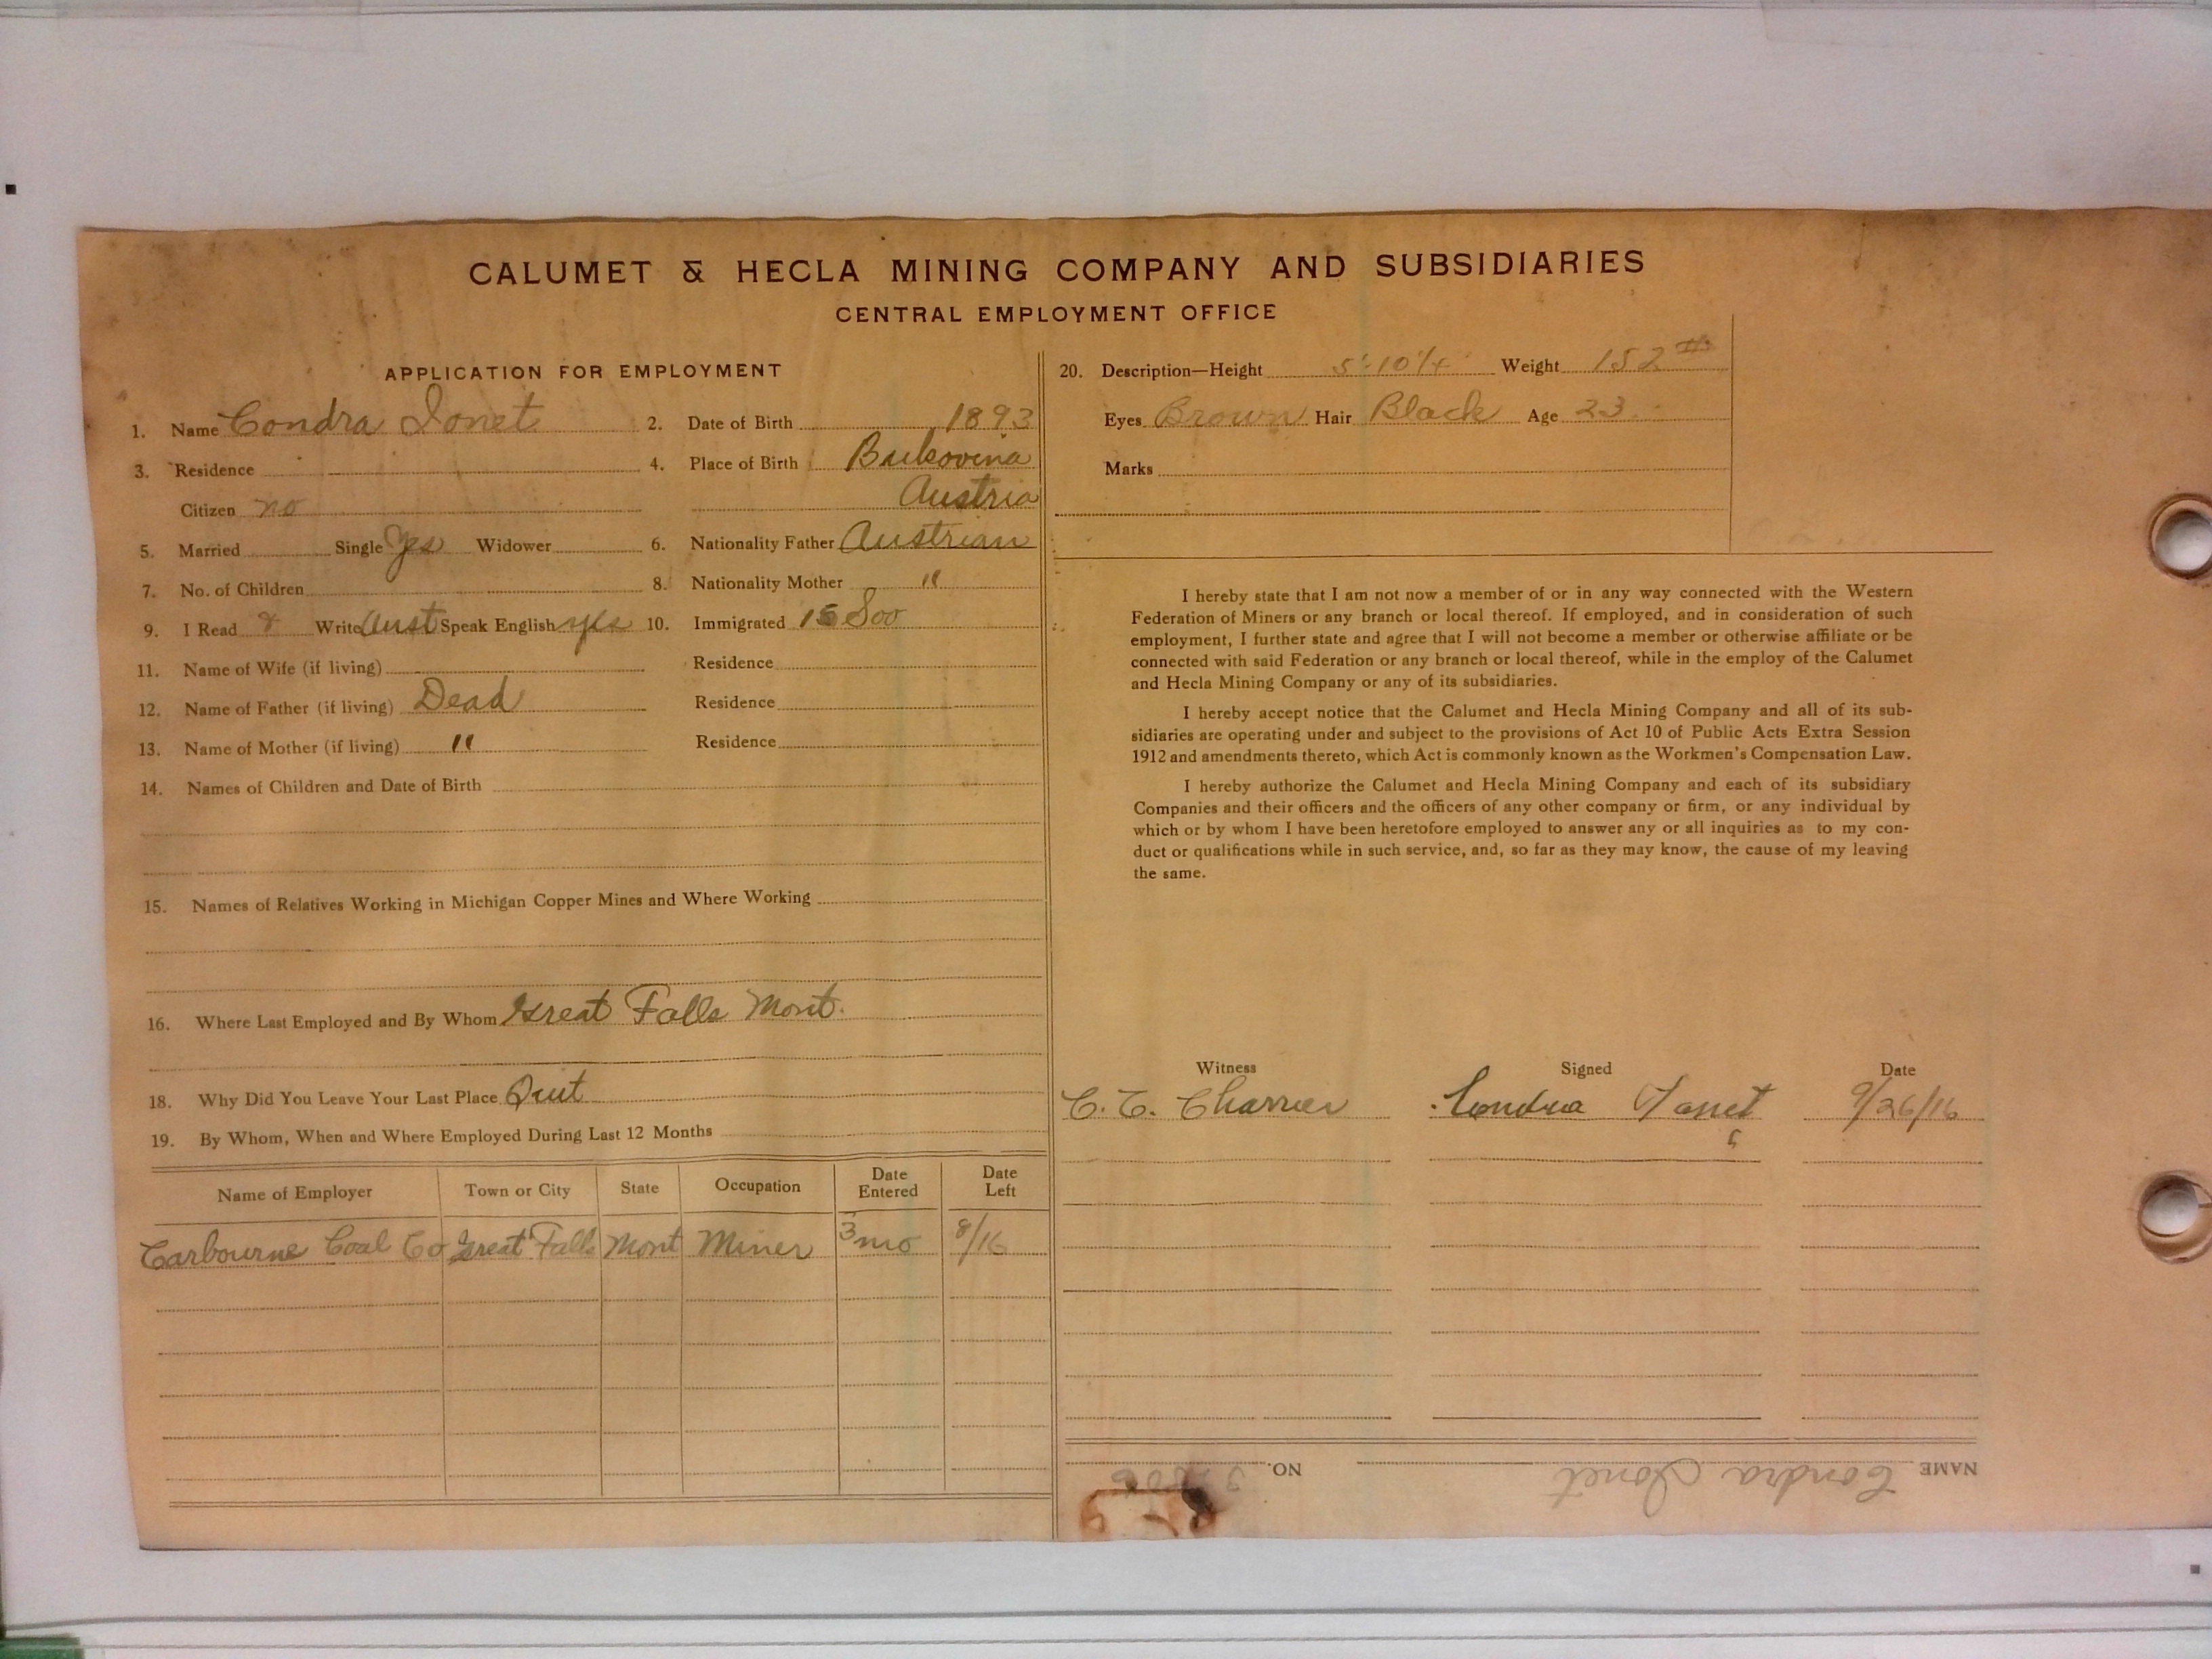 CALUMET & HECLA MINING COMPANY AND SUBSIDIARIES
CENTRAL EMPLOYMENT OFFICE
APPLICATION FOR EMPLOYMENT
1. Name Condra Ionet 2. Date of Birth 1893
3. Residence 4. Place of Birth Bukovina
Citizen no Austria
5. Married Single Yes Widower 6. Nationality Father Austrian
7. No. of Children 8. Nationality Mother "
9. I Read & Write Aust Speak English yes 10. Immigrated 15 Soo
11. Name of Wife (if living) Residence
12. Name of Father (if living) Dead Residence
13. Name of Mother (if living) " Residence
14. Names of Children and Date of Birth
15. Names of Relatives Working in Michigan Copper Mines and Where Working
16. Where Last Employed and By Whom Great Falls Mont.
18. Why Did You Leave Your Last Place Quit
19. By Whom, When and Where Employed During Last 12 Months
Name of Employer Town or City State Occupation Date Entered Date Left
Carbourne Coal Co Great Falls Mont Miner 3 mo 8/16
20. Description—Height 5'-10 1/4 Weight 152 #
Eyes Brown Hair Black Age 23
Marks
I hereby state that I am not now a member of or in any way connected with the Western
Federation of Miners or any branch or local thereof. If employed, and in consideration of such
employment, I further state and agree that I will not become a member or otherwise affiliate or be
connected with said Federation or any branch or local thereof, while in the employ of the Calumet
and Hecla Mining Company or any of its subsidiaries.
I hereby accept notice that the Calumet and Hecla Mining Company and all of its sub-
sidiaries are operating under and subject to the provisions of Act 10 of Public Acts Extra Session
1912 and amendments thereto, which Act is commonly known as the Workmen's Compensation Law.
I hereby authorize the Calumet and Hecla Mining Company and each of its subsidiary
Companies and their officers and the officers of any other company or firm, or any individual by
which or by whom I have been heretofore employed to answer any or all inquiries as to my con-
duct or qualifications while in such service, and, so far as they may know, the cause of my leaving
the same.
Witness Signed Date
C. T. Charrier Condrea 9/26/16
NAME Condra Ionet NO.